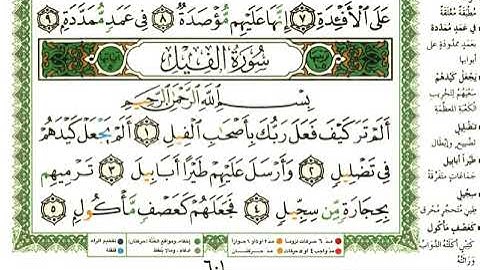 عَلَى الْأَفْـِٔدَةِ ٧ إِنَّهَا عَلَيْهِم مُّؤْصَدَةٌ ٨ فِي عَمَدٍ مُّمَدَّدَةٍ ٩
سُورَةُ الْفِيلِ
بِسْمِ اللَّهِ الرَّحْمَٰنِ الرَّحِيمِ
أَلَمْ تَرَ كَيْفَ فَعَلَ رَبُّكَ بِأَصْحَابِ الْفِيلِ ١ أَلَمْ يَجْعَلْ كَيْدَهُمْ
فِي تَضْلِيلٍ ٢ وَأَرْسَلَ عَلَيْهِمْ طَيْرًا أَبَابِيلَ ٣ تَرْمِيهِم
بِحِجَارَةٍ مِّن سِجِّيلٍ ٤ فَجَعَلَهُمْ كَعَصْفٍ مَّأْكُولٍ ٥
٦٠١
مُطْبَقَةٌ مُغْلَقَةٌ
فِي عَمَدٍ مُمَدَّدَة
بِعَمَدٍ مَمْدُودَةٍ عَلَى
أبوابها
يَجْعَلْ كَيْدَهُمْ
سَعْيَهُمْ لِتَخْرِيبِ
الكَعْبَةِ المُعَظَّمَةِ
تَضْلِيلٍ
تَضْيِيعٍ وَإِبْطَالٍ
طَيْرًا أَبَابِيلَ
جَمَاعَاتٍ مُتَفَرِّقَةً
سِجِّيلٍ
طِينٍ مُتَحَجِّرٍ مُحْرَقٍ
كَعَصْفٍ مَأْكُولٍ
كَتِبْنٍ أَكَلَتْهُ الدَّوَابُّ
وَرَاثَتْهُ